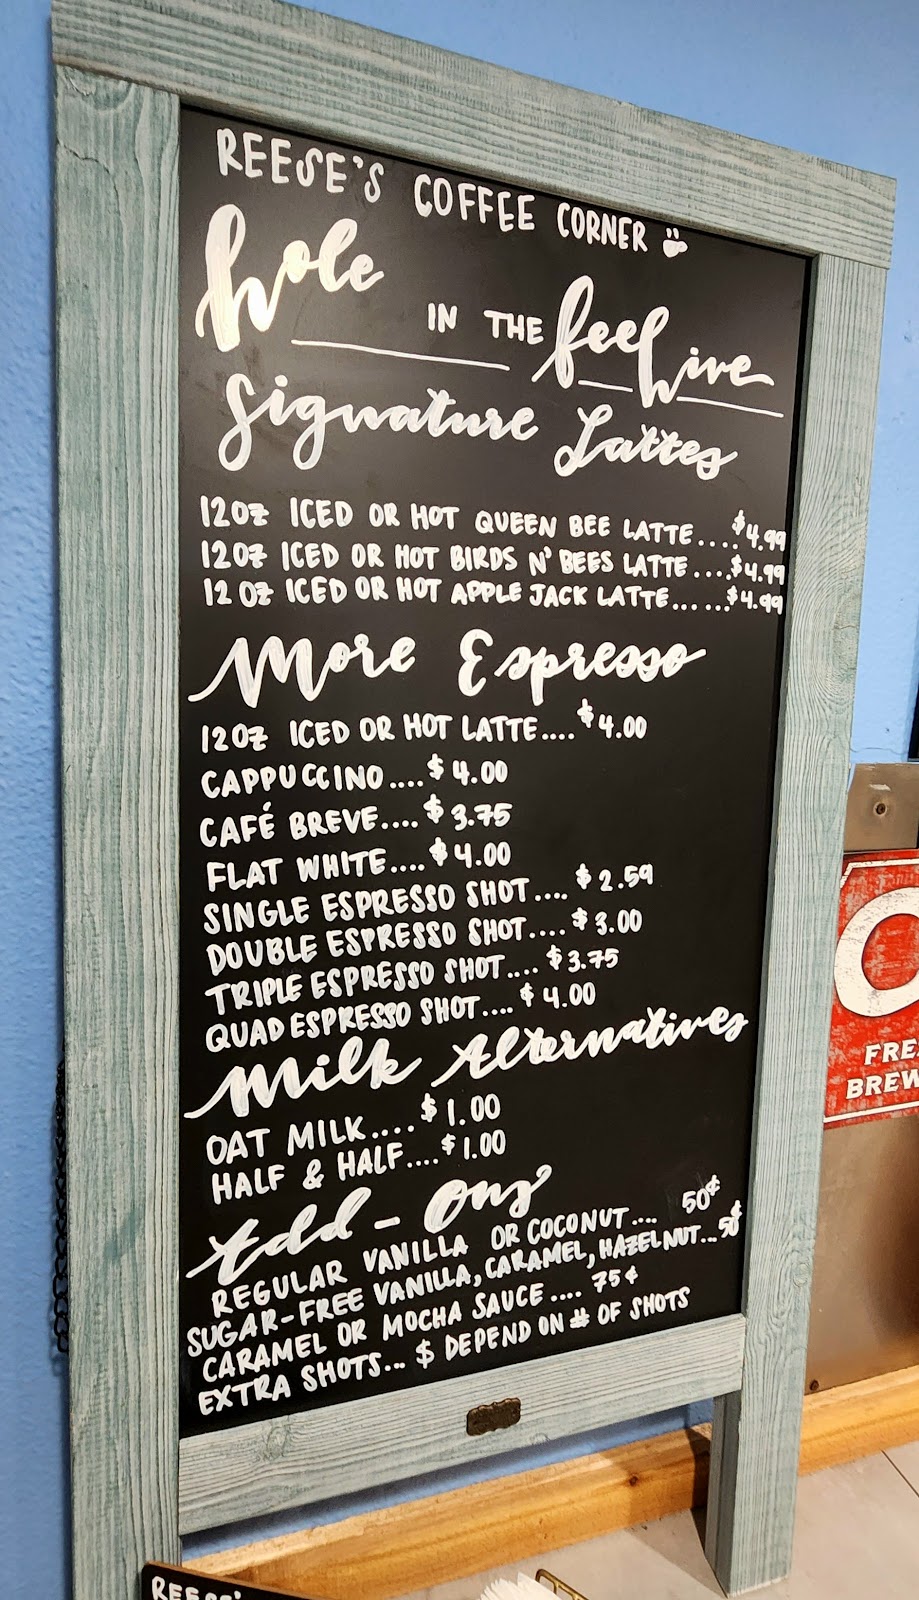 REESE'S COFFEE CORNER
hole IN THE feel hive
Signature Lattes
12OZ ICED OR HOT QUEEN BEE LATTE....$4.99
12OZ ICED OR HOT BIRDS N' BEES LATTE....$4.99
12 OZ ICED OR HOT APPLE JACK LATTE......$4.99
More Espresso
12OZ ICED OR HOT LATTE....$4.00
CAPPUCCINO....$4.00
CAFÉ BREVE....$3.75
FLAT WHITE....$4.00
SINGLE ESPRESSO SHOT....$2.59
DOUBLE ESPRESSO SHOT....$3.00
TRIPLE ESPRESSO SHOT....$3.75
QUAD ESPRESSO SHOT....$4.00
Milk Alternatives
OAT MILK....$1.00
HALF & HALF....$1.00
Add-Ons
REGULAR VANILLA OR COCONUT.... 50¢
SUGAR-FREE VANILLA, CARAMEL, HAZELNUT...50¢
CARAMEL OR MOCHA SAUCE.... 75¢
EXTRA SHOTS... $ DEPEND ON # OF SHOTS
FRE
BREW
REESE'